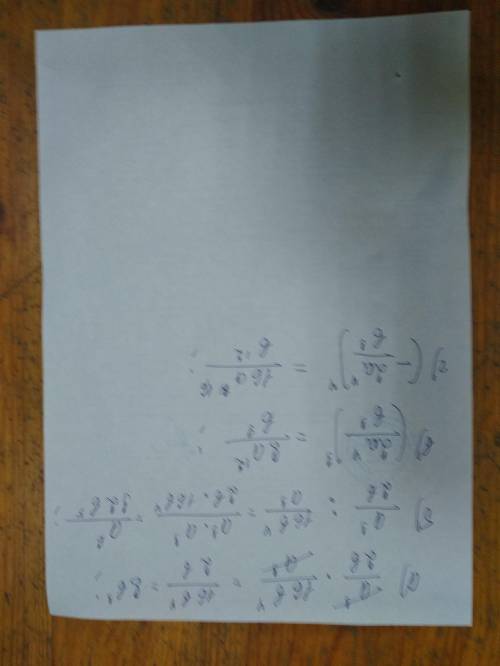 а) a³/2b · 16b⁴/a³ = 16b⁴/2b = 8b³;
б) a³/2b : 16b⁴/a³ = a³·a³/2b·16b⁴ = a⁶/32b⁵;
в) (2a⁴/b³)³ = 8a¹²/b⁹;
г) (-2a⁴/b³)⁴ = 16a¹⁶/b¹²;